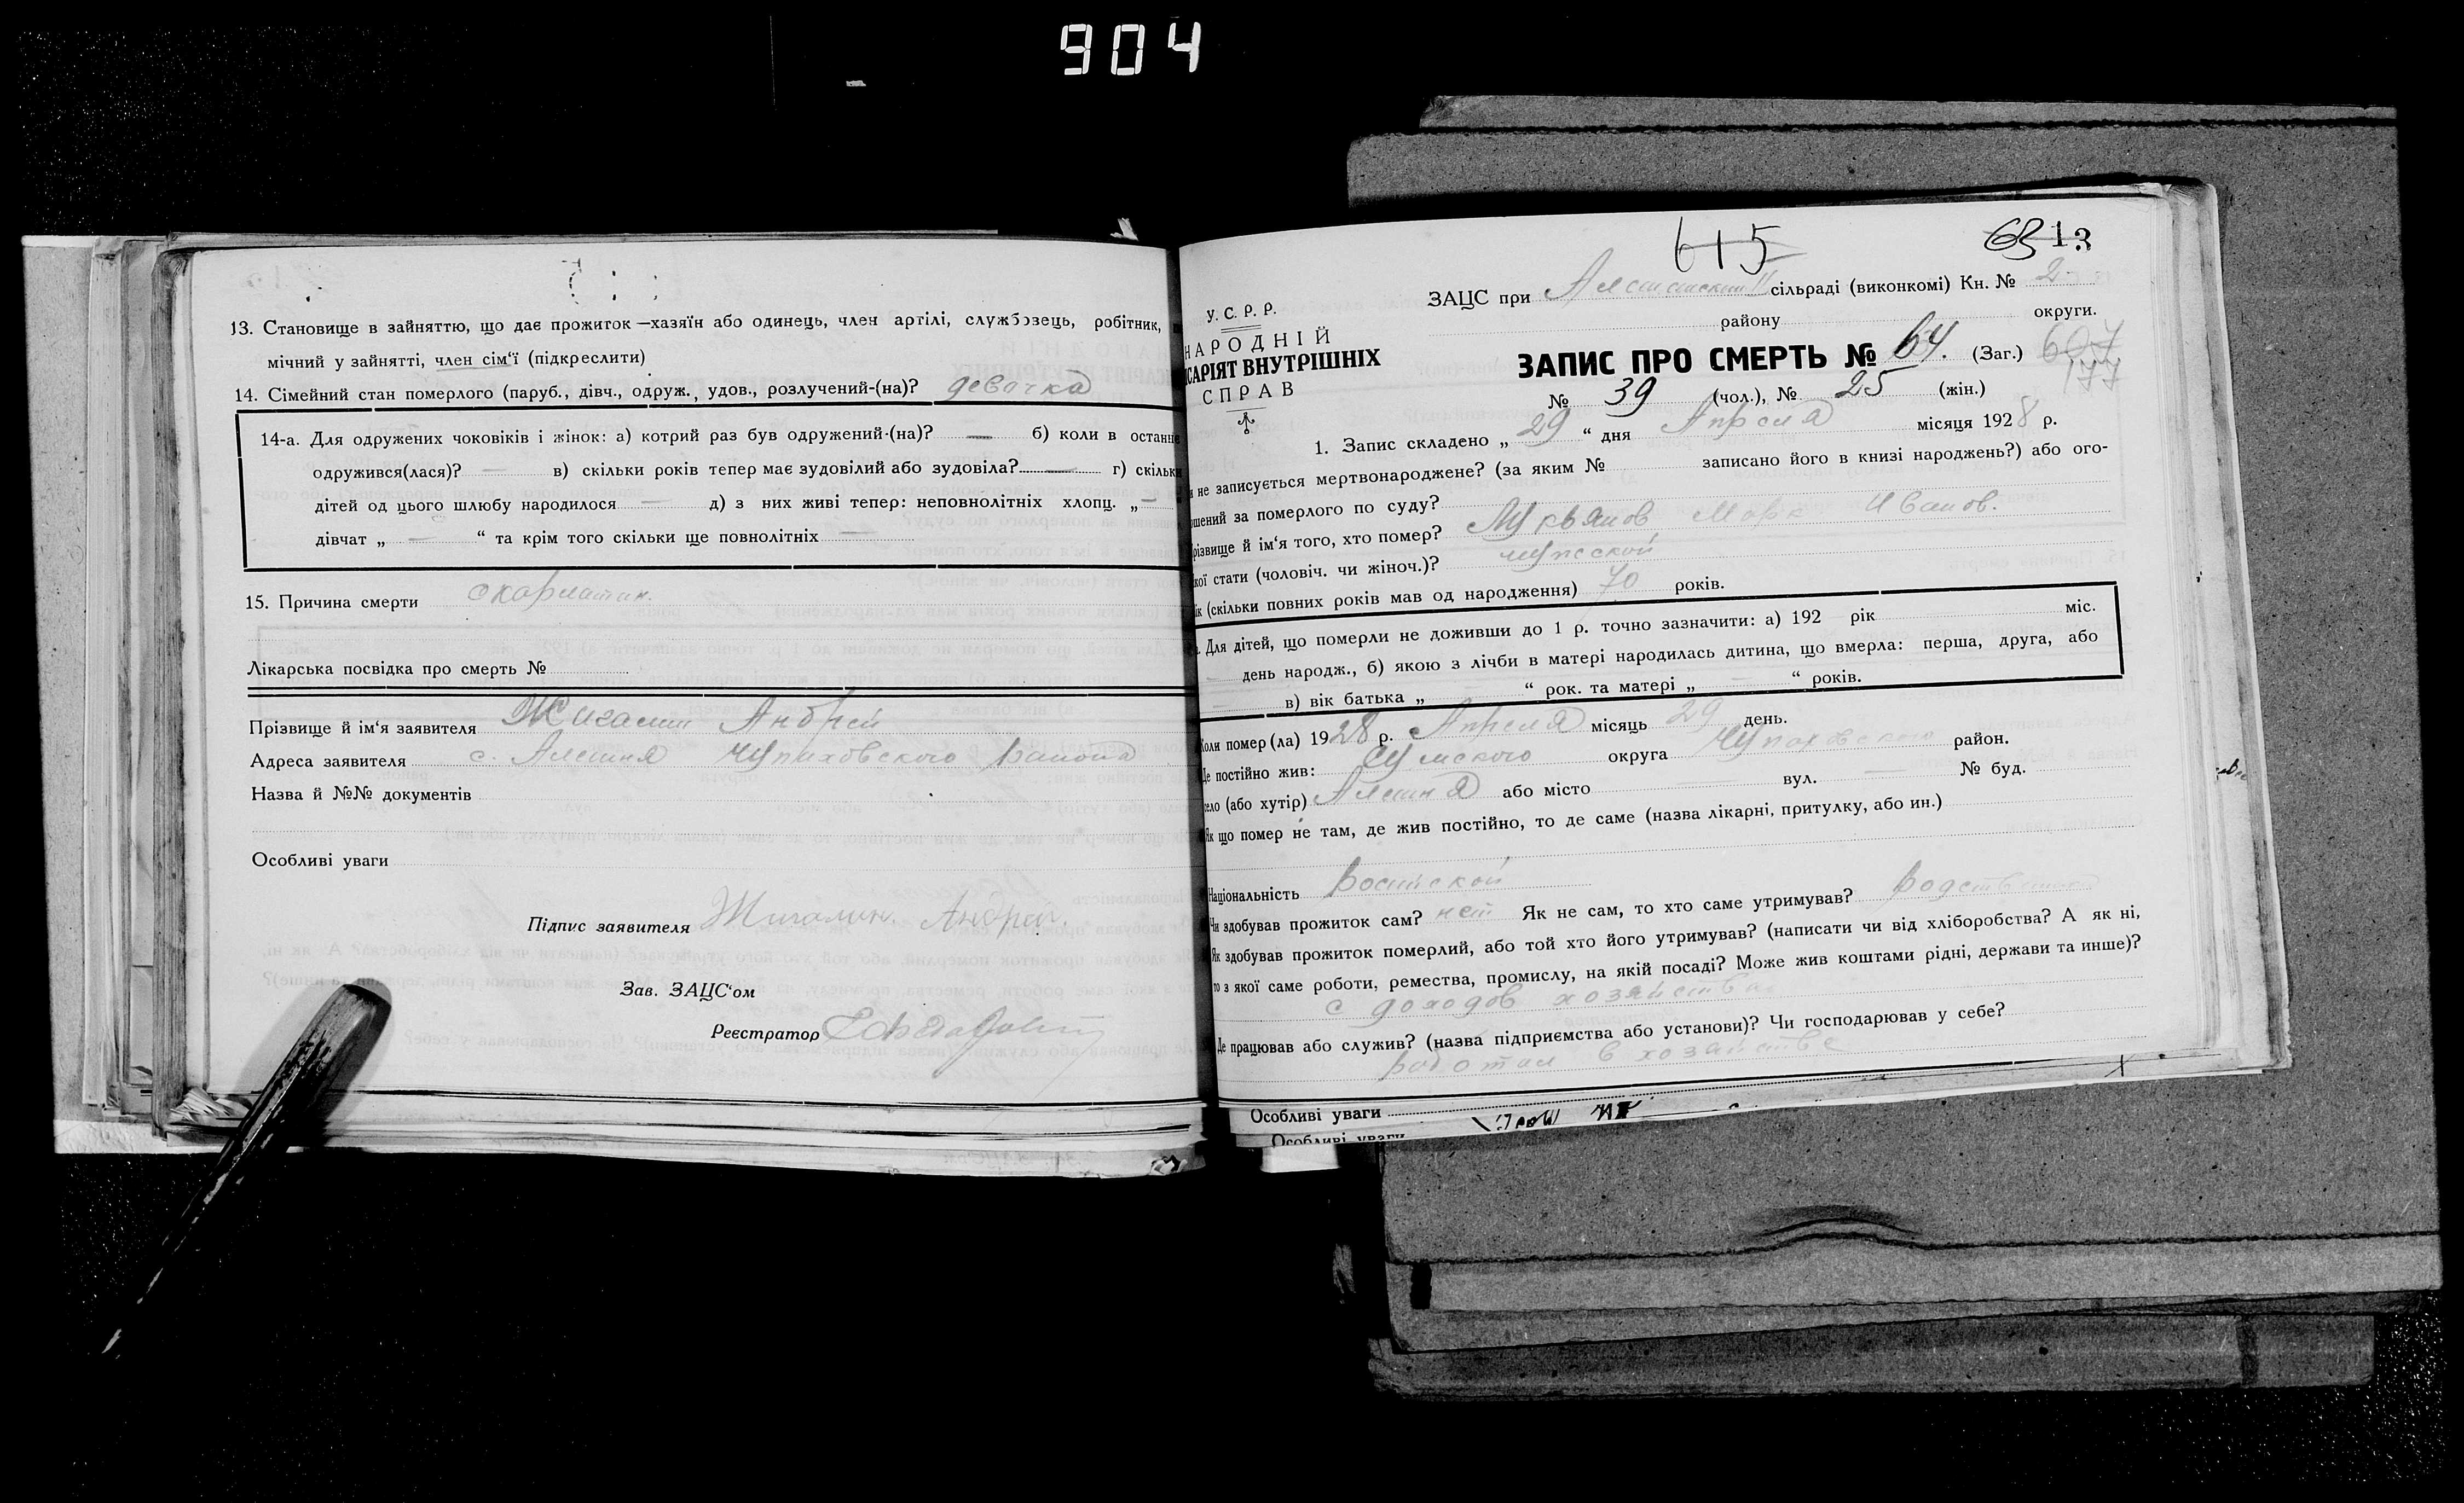 904
13. Становище в зайняттю, що дає прожиток—хазяїн або одинець, член артілі, службовець, робітник,
мічний у зайнятті, член сім'ї (підкреслити)
14. Сімейний стан померлого (паруб., дівч., одруж., удов., розлучений-(на)? девочка
14-а. Для одружених чоковіків і жінок: а) котрий раз був одружений-(на)? — б) коли в останнє
одружився(лася)? — в) скільки років тепер має зудовілий або зудовіла? — г) скільки
дітей од цього шлюбу народилося — д) з них живі тепер: неповнолітніх хлопц. „ —
дівчат „ — “ та крім того скільки ще повнолітніх —
15. Причина смерти скарлатин.
Лікарська посвідка про смерть №
Прізвище й ім'я заявителя Жигалин Андрей
Адреса заявителя с. Алешня Чупиховского Района
Назва й №№ документів
Особливі уваги
Підпис заявителя Жигалин. Андрей.
Зав. ЗАЦС'ом
Реєстратор
615
63 13
У. С. Р. Р.
НАРОДНІЙ
ІСАРІЯТ ВНУТРІШНІХ
СПРАВ
ЗАЦС при сільраді (виконкомі) Кн. № 2
району округи.
ЗАПИС ПРО СМЕРТЬ № 64. (Заг.) 607
177
№ 39 (чол.), № 25 (жін.)
1. Запис складено „ 29 “ дня Апреля місяця 1928 р.
не записується мертвонароджене? (за яким № записано його в книзі народжень?) або ого-
шений за померлого по суду?
різвище й ім'я того, хто помер? Лукьянов Марк Иванов.
кої стати (чоловіч. чи жіноч.)? мужской
ік (скільки повних років мав од народження) 70 років.
Для дітей, що померли не доживши до 1 р. точно зазначити: а) 192 рік міс.
— день народж., б) якою з лічби в матері народилась дитина, що вмерла: перша, друга, або
— в) вік батька „ “ рок. та матері „ — “ років.
Коли помер (ла) 1928 р. Апреля місяць 29 день.
Де постійно жив: Сумского округа Чупаховского район.
село (або хутір) Алешня або місто вул. — № буд.
Як що помер не там, де жив постійно, то де саме (назва лікарні, притулку, або ин.)
Національність Росийской
Чи здобував прожиток сам? нет Як не сам, то хто саме утримував? Родственики
Як здобував прожиток померлий, або той хто його утримував? (написати чи від хліборобства? А як ні,
то з якої саме роботи, ремества, промислу, на якій посаді? Може жив коштами рідні, держави та инше)?
с доходов хозяйства
Де працював або служив? (назва підприємства або установи)? Чи господарював у себе?
работал в хозяйстве
Особливі уваги
Особливі уваги